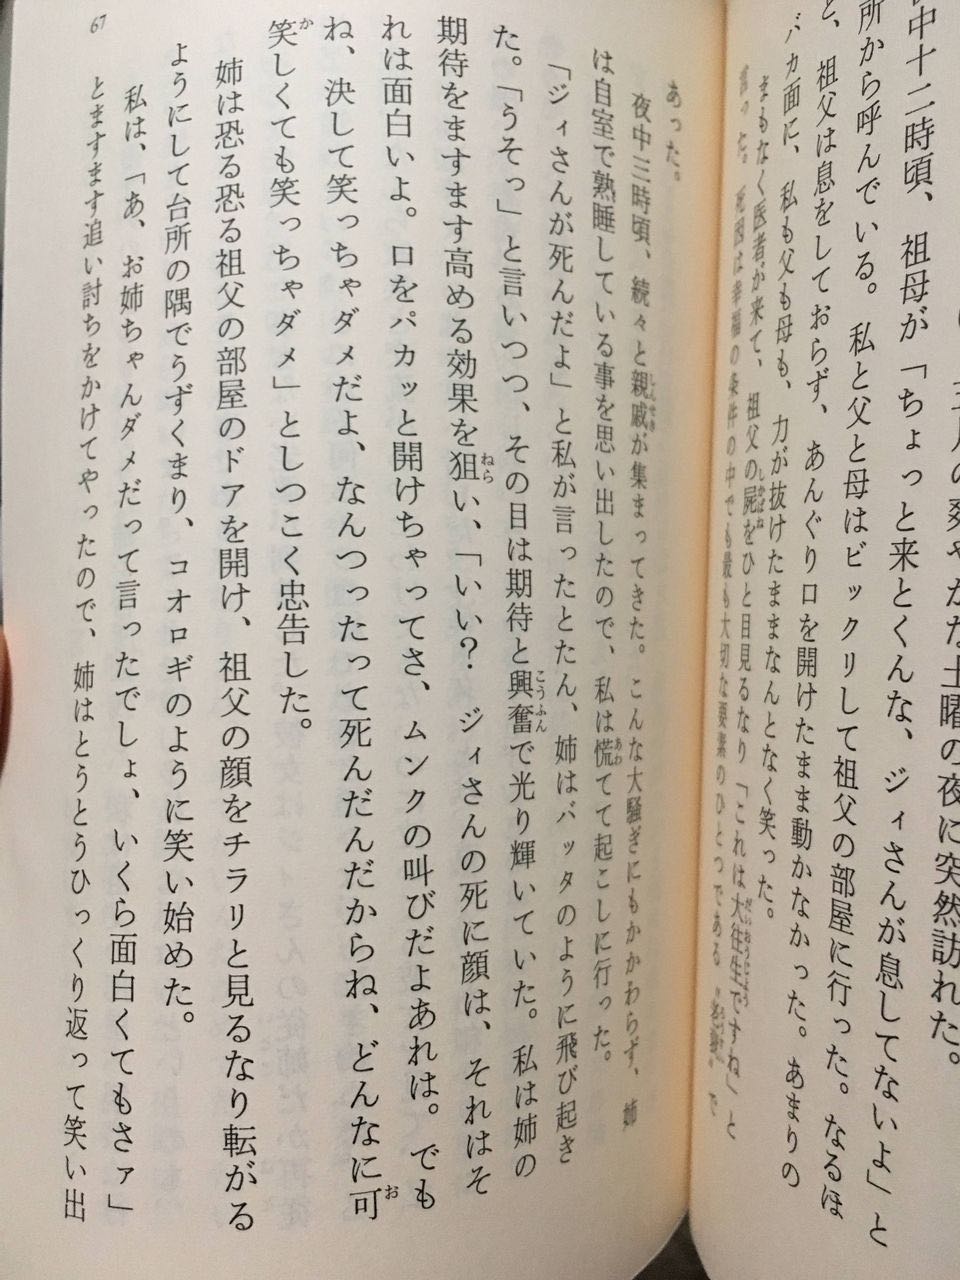 土曜の夜に突然訪れた。
中十二時頃、祖母が「ちょっと来とくんな、ジィさんが息してないよ」と
所から呼んでいる。私と父と母はビックリして祖父の部屋に行った。なるほ
と、祖父は息をしておらず、あんぐり口を開けたまま動かなかった。あまりの
バカ面に、私も父も母も、力が抜けたままなんとなく笑った。
まもなく医者が来て、祖父の屍をひと目見るなり「これは大往生ですね」と
言った。死因は幸福の条件の中でも最も大切な要素のひとつである
あった。
夜中三時頃、続々と親戚が集まってきた。こんな大騒ぎにもかかわらず、姉
は自室で熟睡している事を思い出したので、私は慌てて起こしに行った。
「ジィさんが死んだよ」と私が言ったとたん、姉はバッタのように飛び起き
た。「うそっ」と言いつつ、その目は期待と興奮で光り輝いていた。私は姉の
期待をますます高める効果を狙い、「いい? ジィさんの死に顔は、それはそ
れは面白いよ。口をパカッと開けちゃってさ、ムンクの叫びだよあれは。でも
ね、決して笑っちゃダメだよ、なんつったって死んだんだからね、どんなに可
笑しくても笑っちゃダメ」としつこく忠告した。
姉は恐る恐る祖父の部屋のドアを開け、祖父の顔をチラリと見るなり転がる
ようにして台所の隅でうずくまり、コオロギのように笑い始めた。
私は、「あ、お姉ちゃんダメだって言ったでしょ、いくら面白くてもさァ」
とますます追い討ちをかけてやったので、姉はとうとうひっくり返って笑い出
67